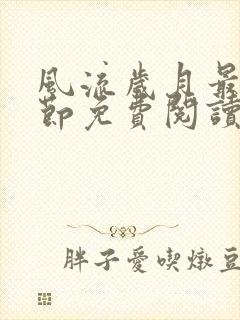 風流歲月最
節免費閱讀
胖子愛喫燉豆